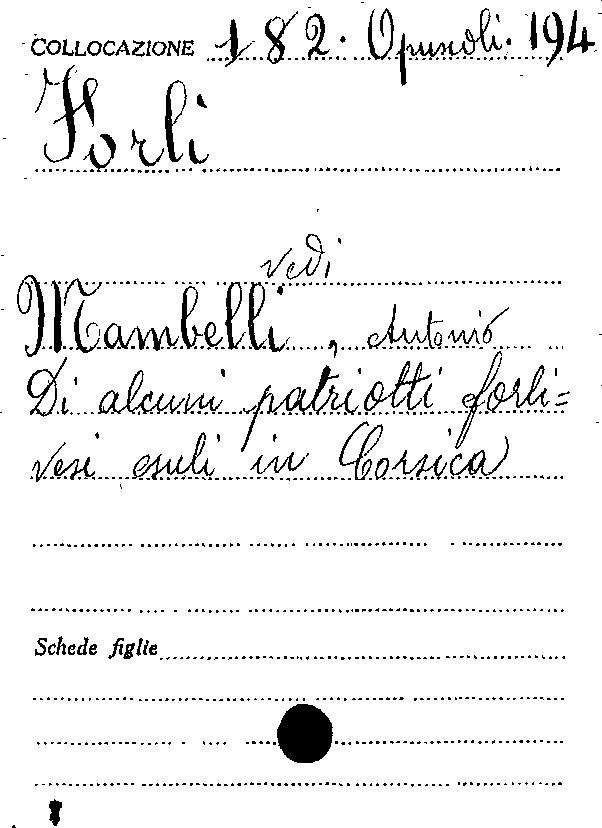 COLLOCAZIONE 182. Opuscoli. 194
Forlì
vedi
Mambelli, Antonio
Di alcuni patriotti forli=
vesi esuli in Corsica
Schede figlie